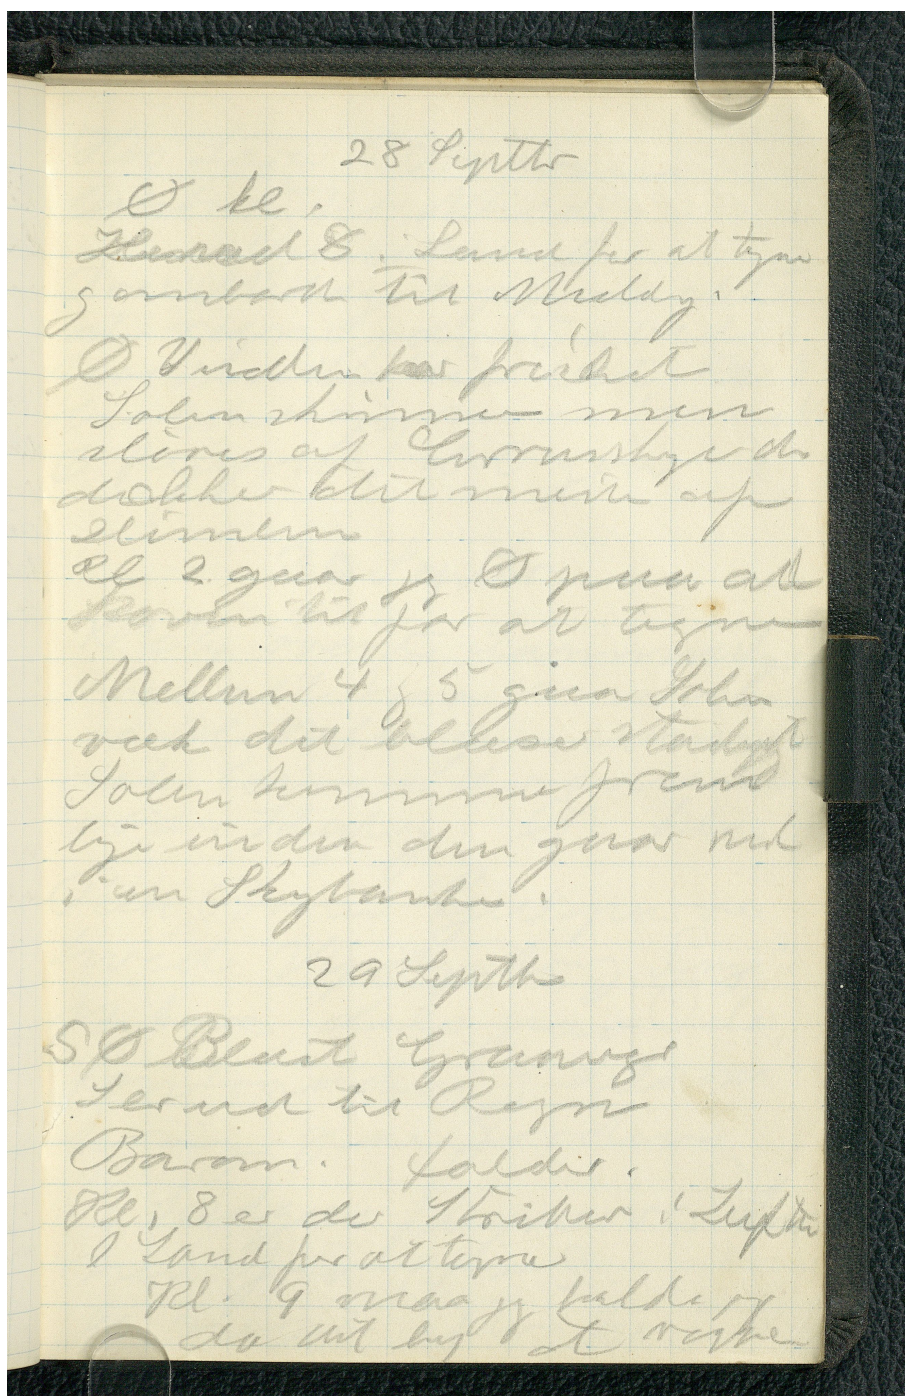 28 Septbr
Ø kl.
8 i Land for at tegne
ombord til Middg.
Ø Vinden har frisket
Solen skinner men
sløres af Cirrusskye de
dækker det meste af
Himlen
Kl 2 gaar jg Ø paa at
til for at tegne
Mellem 4 & 5 gaar Solen
væk det blæser stadigt
Solen kommer frem
lige inden den gaar ned
i en Skybanke.
29 Septbr
SØ Blæst Graaveyr
Ser ud til Regn
Barom. falder.
Kl. 8 er der Striber i Luften
I Land for at tegne
Kl. 9 maa jg holde op
da det beg at regne